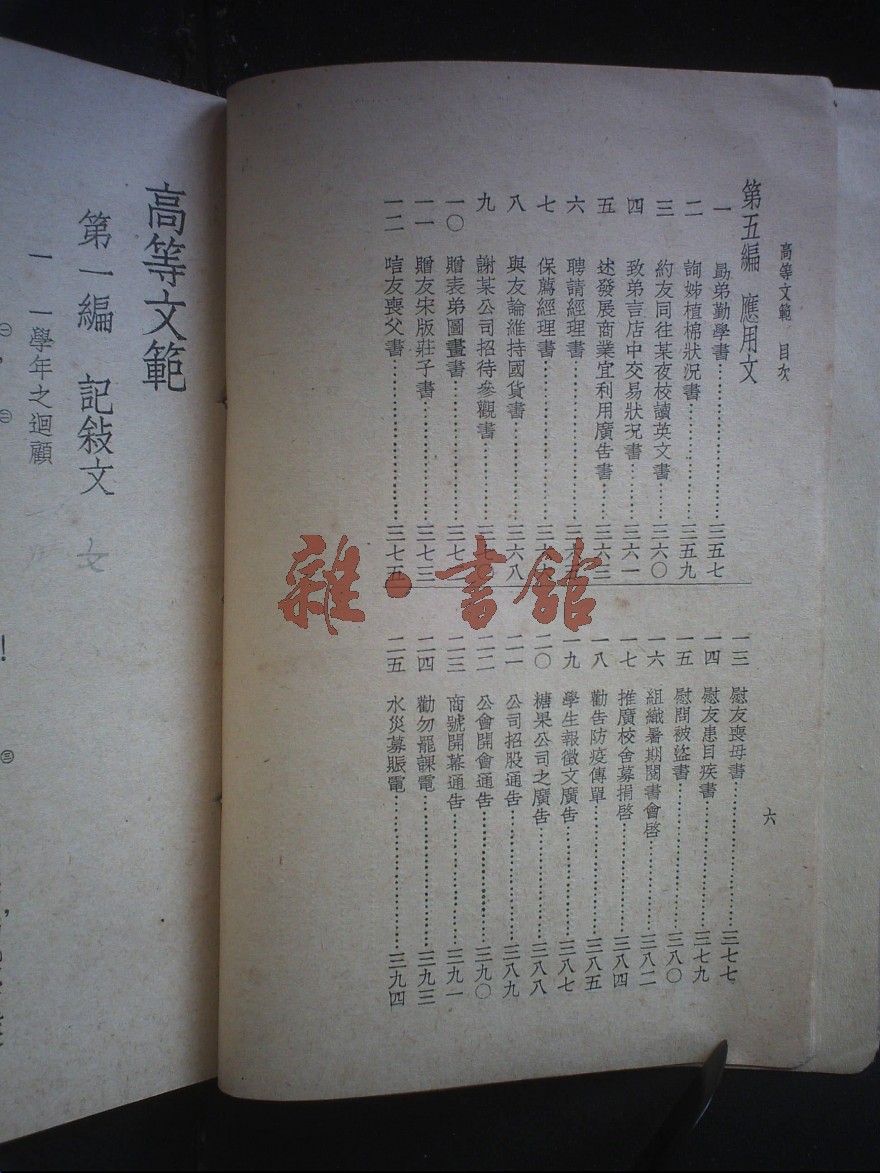 高等文範 目次
六
第五編 應用文
一 勗弟勤學書 三五七
二 詢姊植棉狀況書 三五九
三 約友同往某夜校讀英文書 三六〇
四 致弟言店中交易狀況書 三六一
五 述發展商業宜利用廣告書 三六三
六 聘請經理書
七 保薦經理書
八 與友論維持國貨書 三六八
九 謝某公司招待參觀書
一〇 贈表弟圖畫書
一一 贈友宋版莊子書 三七三
一二 唁友喪父書 三七五
一三 慰友喪母書 三七七
一四 慰友患目疾書 三七九
一五 慰問被盜書 三八〇
一六 組織暑期閱書會啓 三八二
一七 推廣校舍募捐啓 三八四
一八 勸告防疫傳單 三八五
一九 學生報徵文廣告 三八七
二〇 糖果公司之廣告 三八八
二一 公司招股通告 三八九
二二 公會開會通告 三九〇
二三 商號開幕通告 三九一
二四 勸勿罷課電 三九三
二五 水災募賑電 三九四
雜·書館
高等文範
第一編 記敍文
一 一學年之迴顧